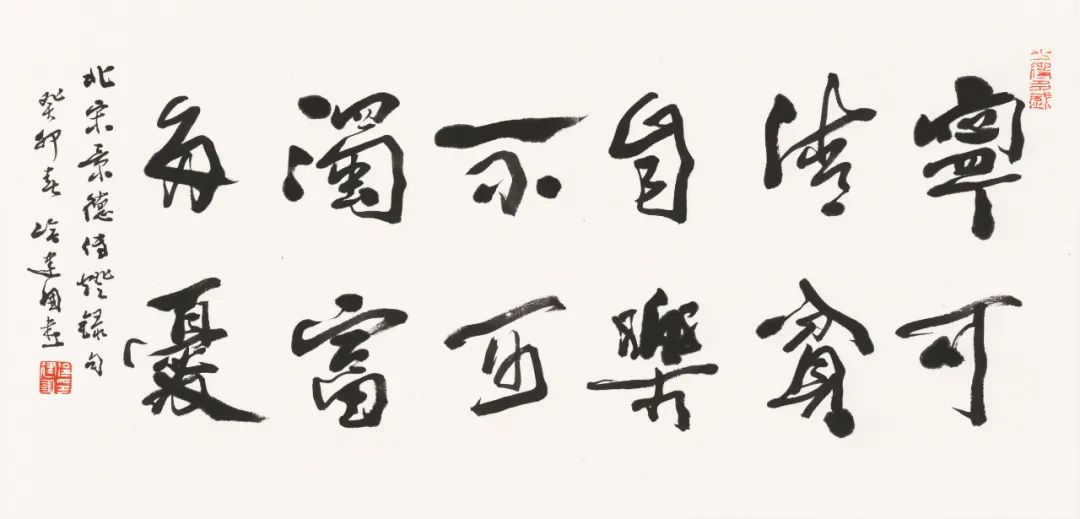 寧可
清貧
自樂
不可
濁富
多憂
北宋景德傳燈錄句
癸卯春 徐建國書